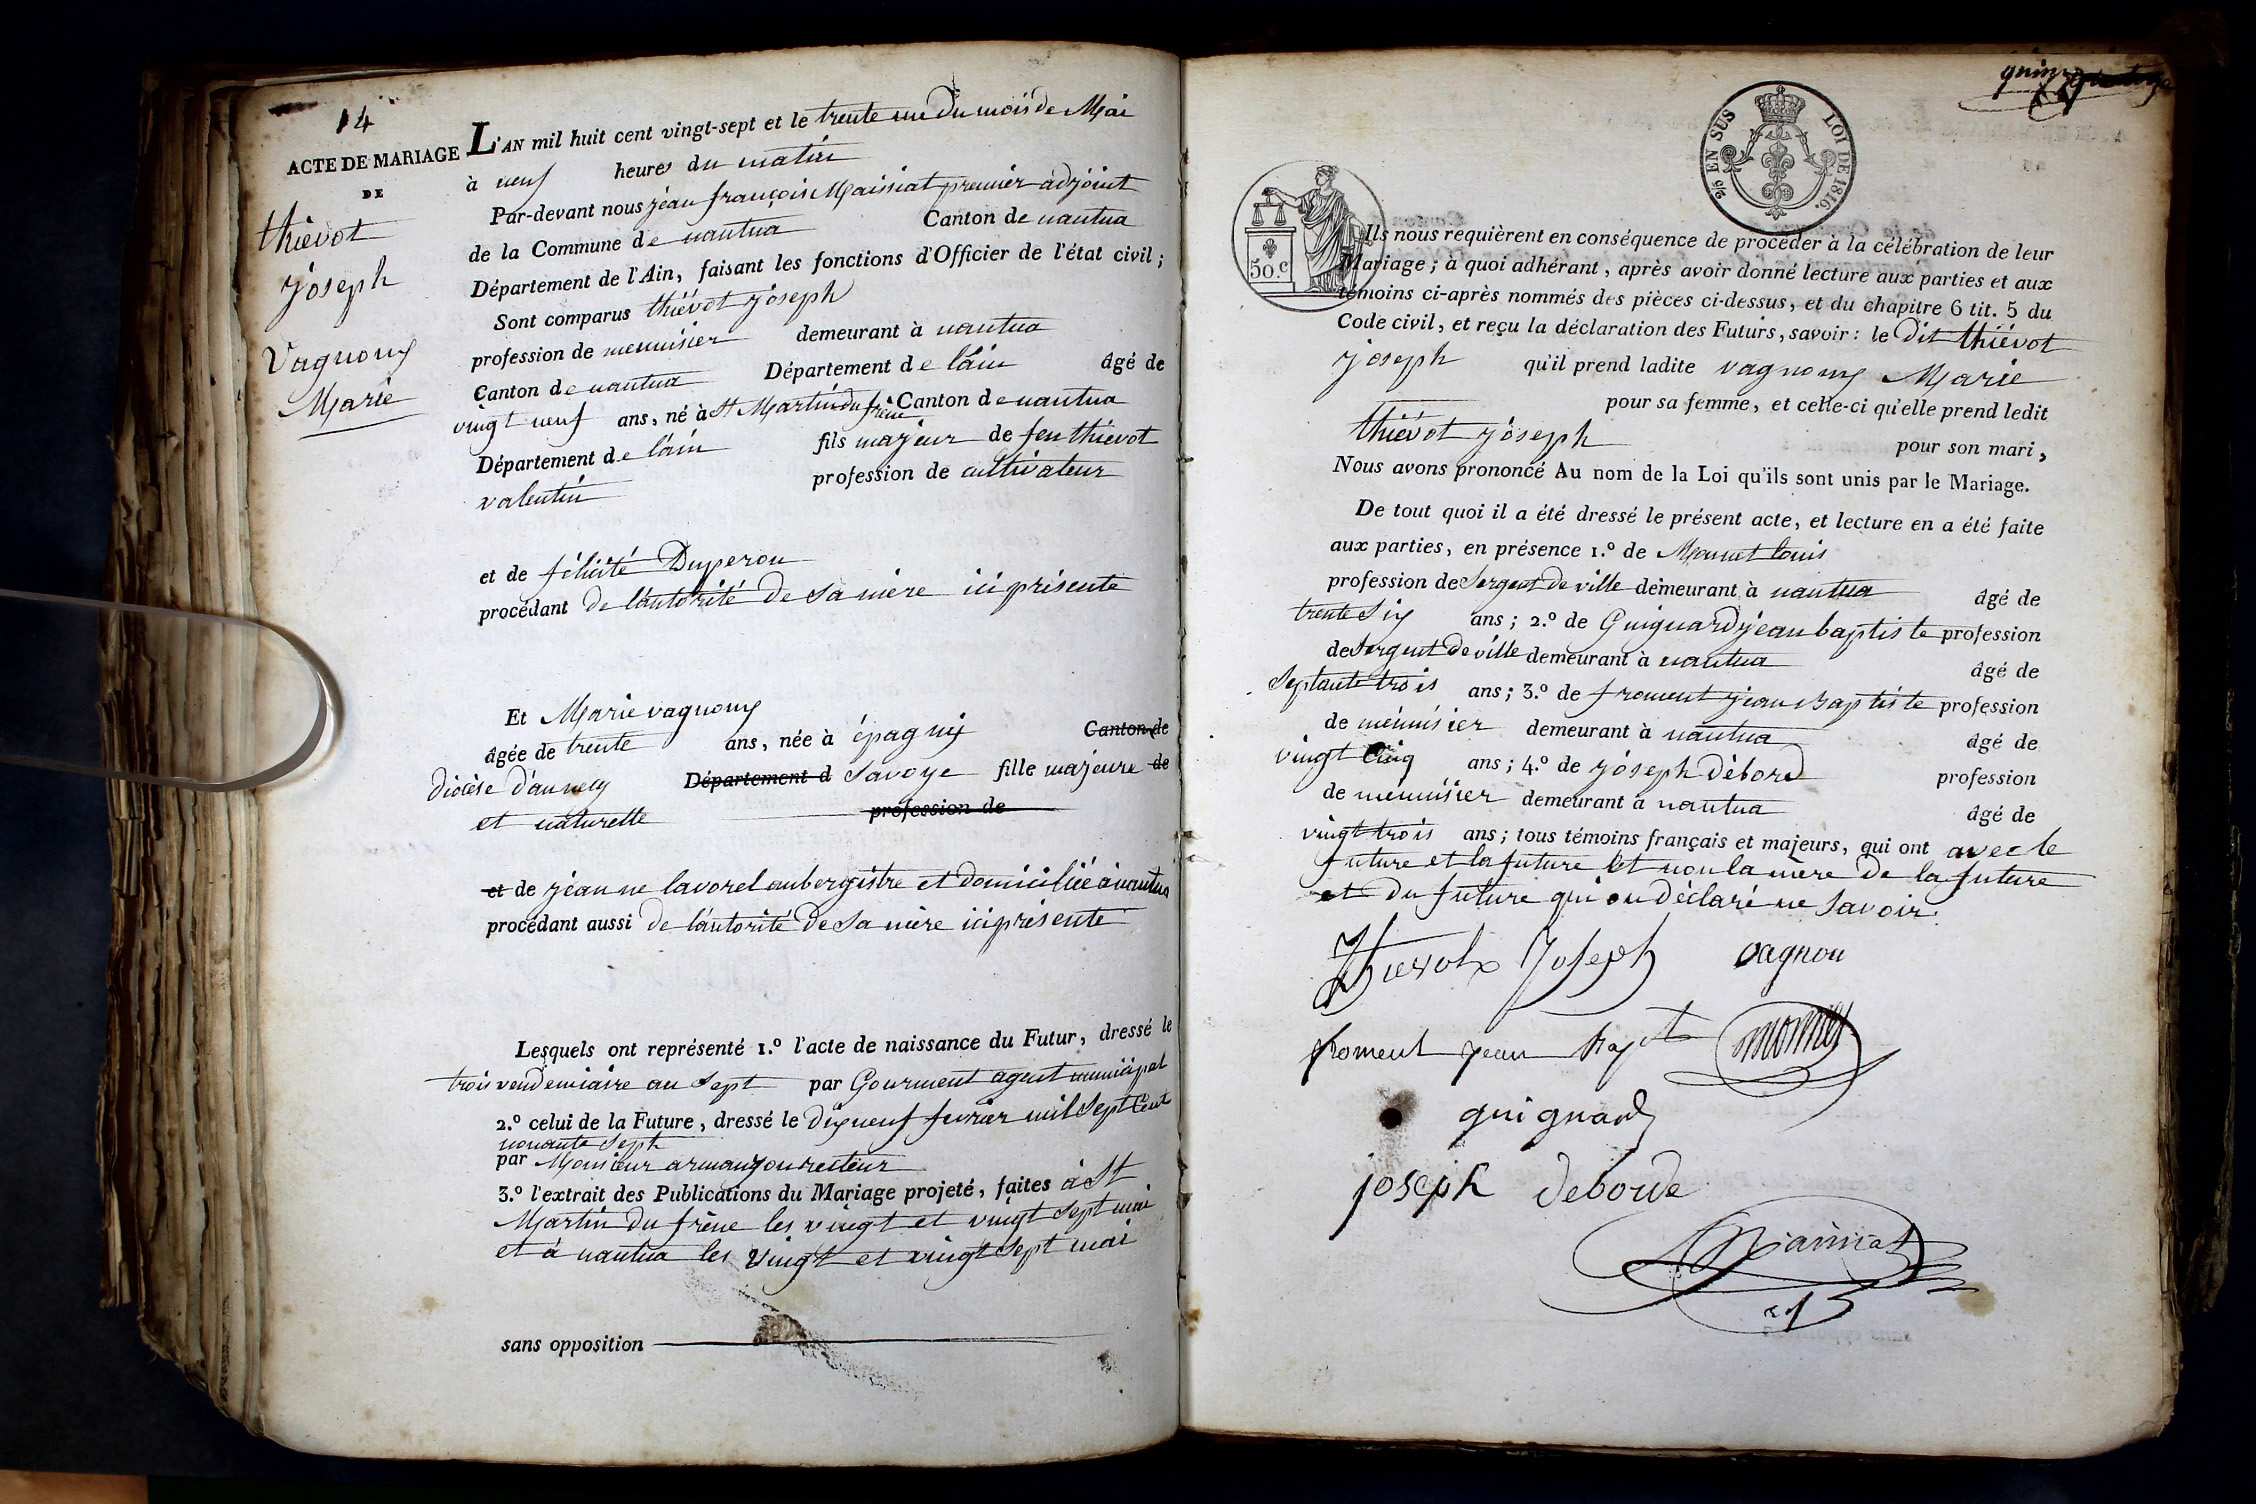 14
ACTE DE MARIAGE
DE
thiévot
joseph
Vagnoux
Marie
L'AN mil huit cent vingt-sept et le trente un du mois de Mai
à neuf heures du matin
Par-devant nous jean françois Maissiat premier adjoint
de la Commune de nantua Canton de nantua
Département de l'Ain, faisant les fonctions d'Officier de l'état civil ;
Sont comparus thiévot joseph
profession de menuisier demeurant à nantua
Canton de nantua Département de l'ain âgé de
vingt neuf ans, né à St Martin du frêne Canton de nantua
Département de l'ain fils majeur de feu thievot
valentin profession de cultivateur
et de félicité Duperou
procédant de l'autorité de sa mère ici présente
Et Marie vagnoux
âgée de trente ans, née à épagny Canton de
diocèse d'annecy Département d savoye fille majeure de
et naturelle profession de
et de jeanne lavorel aubergistre et domiciliée à nantua
procédant aussi de l'autorité de sa mère ici présente
Lesquels ont représenté 1.º l'acte de naissance du Futur, dressé le
trois vendemiaire an sept par Gourment agent municipal
2.º celui de la Future, dressé le dix neuf fevrier mil sept cent
nonante sept
par Monsieur recteur
3.º l'extrait des Publications du Mariage projeté, faites à St
Martin du frêne les vingt et vingt sept mai
et à nantua les vingt et vingt sept mai
sans opposition
2/5 EN SUS LOI DE 1816.
50.c
Ils nous requièrent en conséquence de procéder à la célébration de leur
Mariage ; à quoi adhérant, après avoir donné lecture aux parties et aux
témoins ci-après nommés des pièces ci-dessus, et du chapitre 6 tit. 5 du
Code civil, et reçu la déclaration des Futurs, savoir : le dit thiévot
joseph qu'il prend ladite vagnoux Marie
pour sa femme, et celle-ci qu'elle prend ledit
thiévot joseph pour son mari,
Nous avons prononcé Au nom de la Loi qu'ils sont unis par le Mariage.
De tout quoi il a été dressé le présent acte, et lecture en a été faite
aux parties, en présence 1.º de Monnet louis
profession de Sergent de ville demeurant à nantua âgé de
trente six ans ; 2.º de Guignard jean baptiste profession
de sergent de ville demeurant à nantua âgé de
septante trois ans ; 3.º de froment jean Baptiste profession
de menuisier demeurant à nantua âgé de
vingt cinq ans ; 4.º de joseph débord profession
de menuisier demeurant à nantua âgé de
vingt trois ans ; tous témoins français et majeurs, qui ont avec le
future et la future et non la mère de la future
et du future qui on déclaré ne savoir.
Thievot Joseph vagnou
froment jean bapt monnet
guignard
joseph deborde
Maissiat